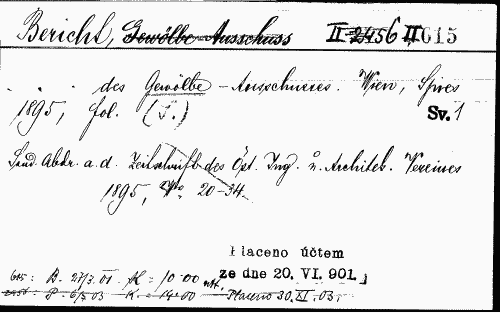 Bericht, Gewölbe-Ausschuss II-2456 II615
. . . des Gewölbe-Ausschusses. Wien, Spies
1895, fol. (S.) Sv. 1
Sond. Abdr. a. d. Zeitschrift des Öst. Ing. u. Architek. Vereines
1895, No. 20-34.
Placeno účtem
615: B. 27/3. 01 K = 10·00 ze dne 20. VI. 901
2456 P. 6/5 03 K = 14·00 Placeno 30. XI. 03.